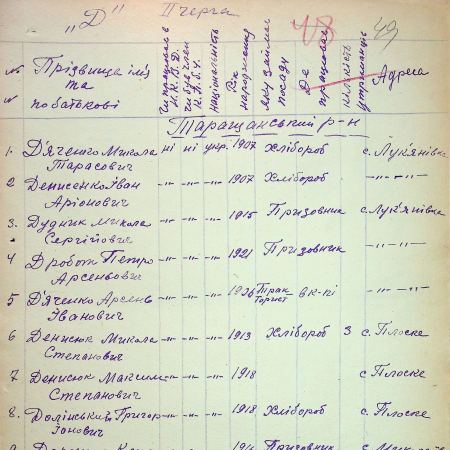 „Д" II черга 48 49
№№ Прізвище ім'я та по батькові
Чи працював в Н.К.В.Д. чи був член К.П.б.У.
національність
Рік народження
яку займає посаду
Де працював
кількість утриманців
Адреса
Таращанський р-н
1. Д'яченко Микола Тарасович ні ні укр. 1907 хлібороб с. Лук'янівка
2 Денисенко Іван Аріонович -"- -"- -"- 1907 Хлібороб -"- -"-
3. Дудник Микола Сергійович -"- -"- -"- 1915 Призовник с. Лук'янівка
4 Дробот Петро Арсеньович -"- -"- -"- 1921 Призовник -"- -"-
5 Д'яченко Арсень Іванович -"- -"- -"- Тракторист в к-пі -"- -"-
6 Денисюк Микола Степанович -"- -"- -"- 1913 Хлібороб 3 с. Плоске
7 Денисюк Максим Степанович -"- -"- -"- 1918 с Плоске
8. Долінський Григор Іонович -"- -"- -"- 1918 Хлібороб с. Плоске
Призовник